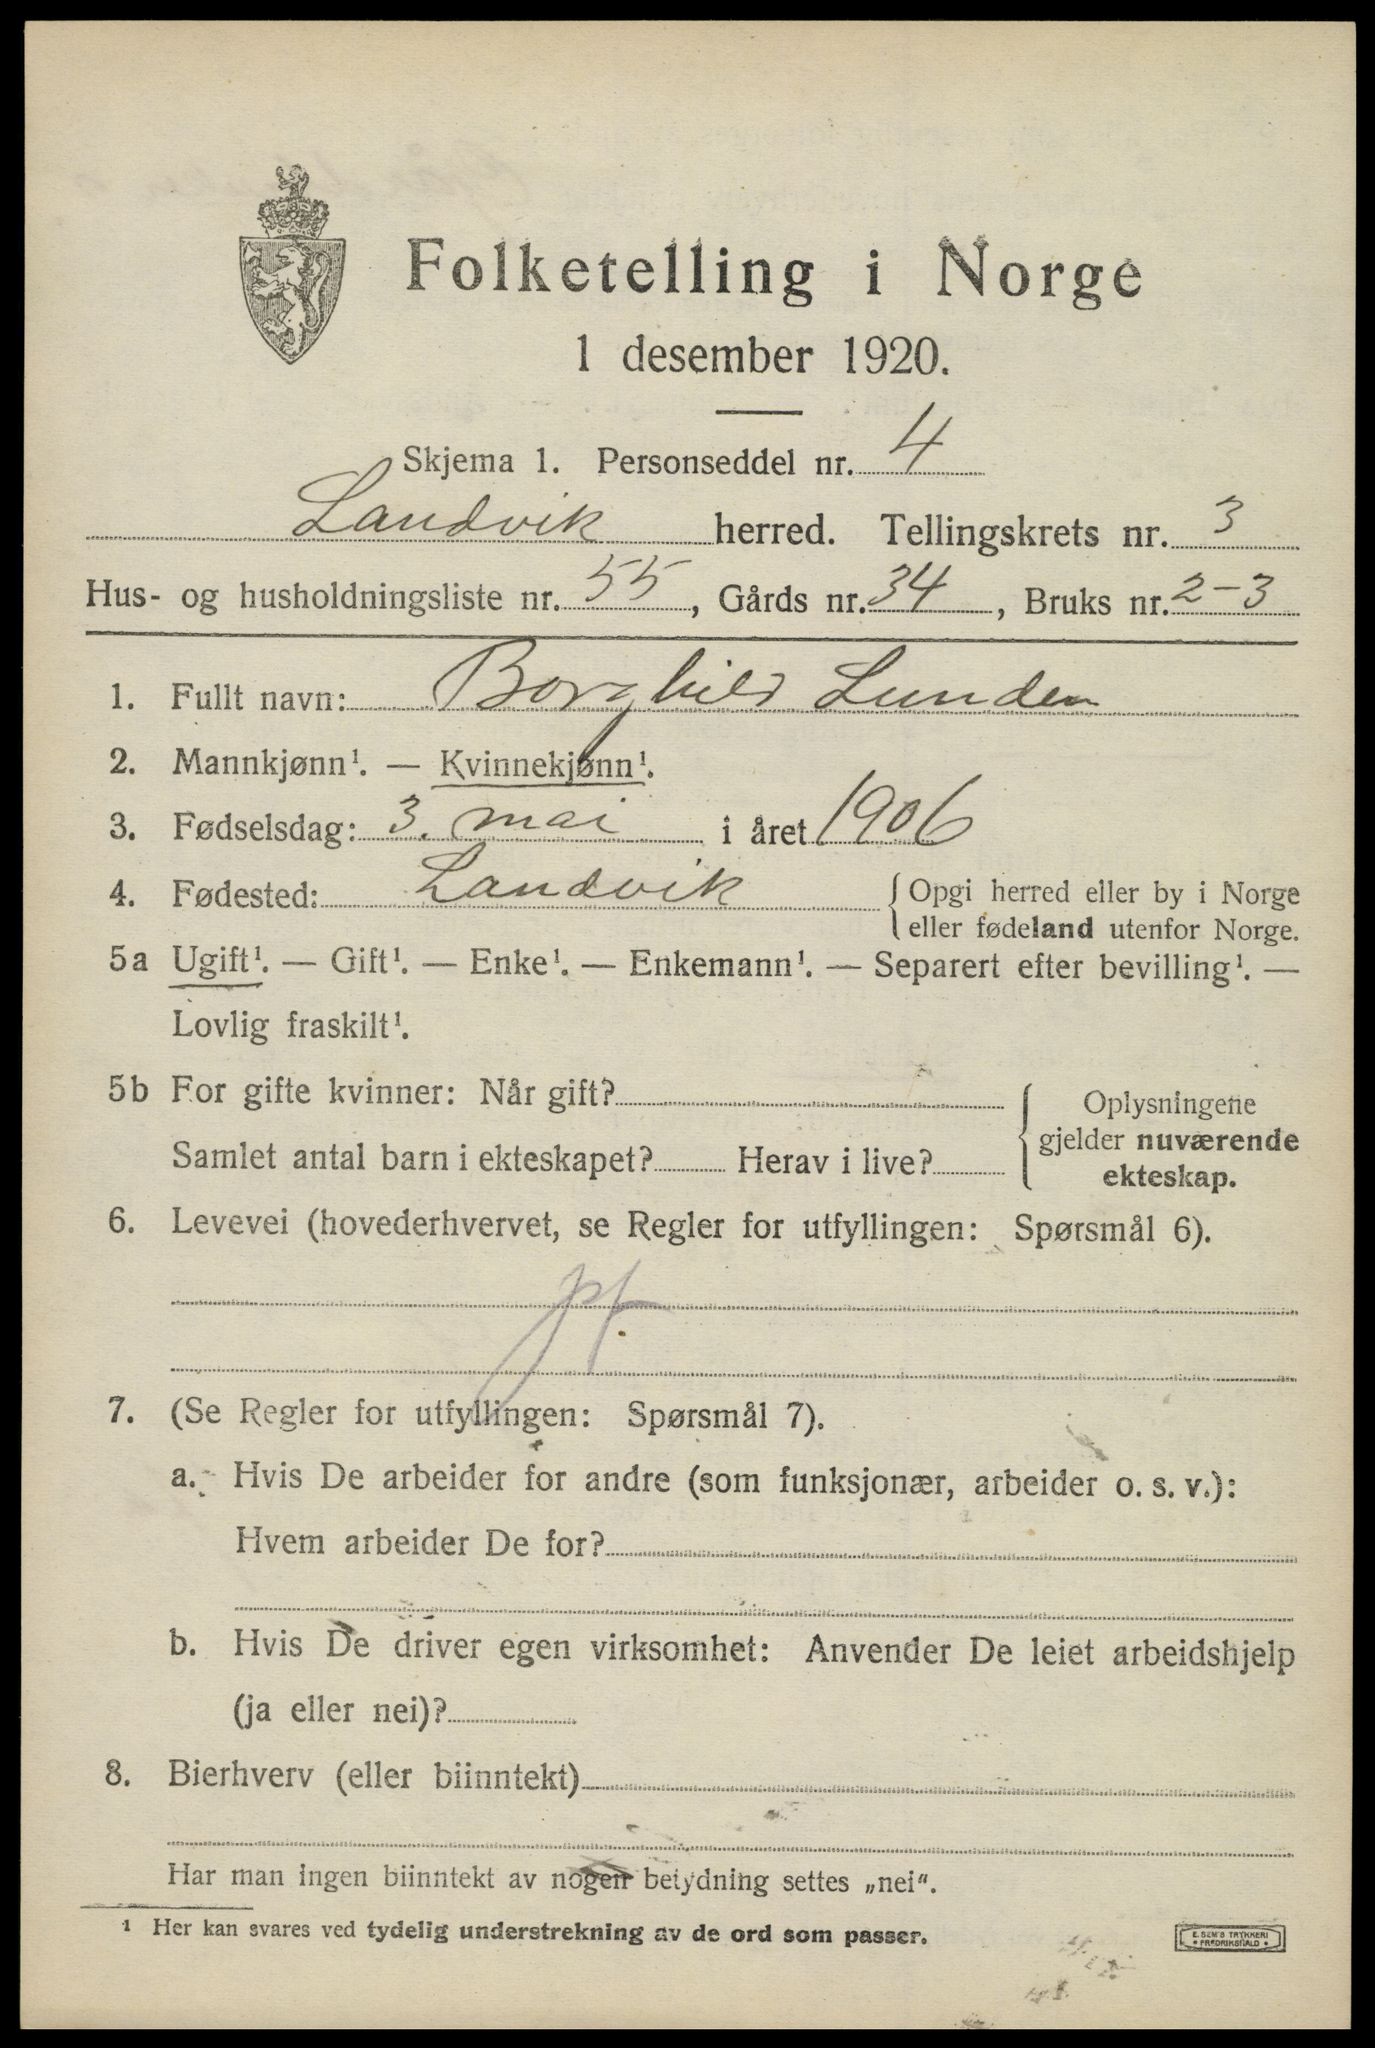 Folketelling i Norge
1 desember 1920.
Skjema 1. Personseddel nr. 4
Landvik herred. Tellingskrets nr. 3
Hus- og husholdningsliste nr. 55, Gårds nr. 34, Bruks nr. 2-3
1. Fullt navn: Borghild Lunden
2. Mannkjønn¹. — Kvinnekjønn¹.
3. Fødselsdag: 3. mai i året 1906
4. Fødested: Landvik { Opgi herred eller by i Norge
eller fødeland utenfor Norge.
5a Ugift¹. — Gift¹. — Enke¹. — Enkemann¹. — Separert efter bevilling¹. —
Lovlig fraskilt¹.
5b For gifte kvinner: Når gift? { Oplysningene
gjelder nuværende
Samlet antal barn i ekteskapet? Herav i live?
ekteskap.
6. Levevei (hovederhvervet, se Regler for utfyllingen: Spørsmål 6).
7. (Se Regler for utfyllingen: Spørsmål 7).
a. Hvis De arbeider for andre (som funksjonær, arbeider o. s. v.):
Hvem arbeider De for?
b. Hvis De driver egen virksomhet: Anvender De leiet arbeidshjelp
(ja eller nei)?
8. Bierhverv (eller biinntekt)
Har man ingen biinntekt av nogen betydning settes „nei“.
¹ Her kan svares ved tydelig understrekning av de ord som passer.
E. SEM'S TRYKKERI
• FREDRIKSHALD •